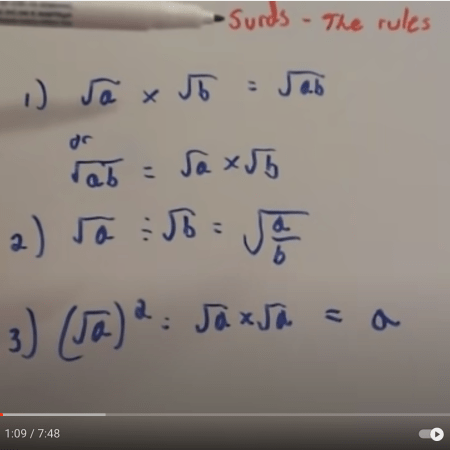 Surds - The rules
1) √a × √b = √ab
or
√ab = √a × √b
2) √a ÷ √b = √(a/b)
3) (√a)² = √a × √a = a
1:09 / 7:48